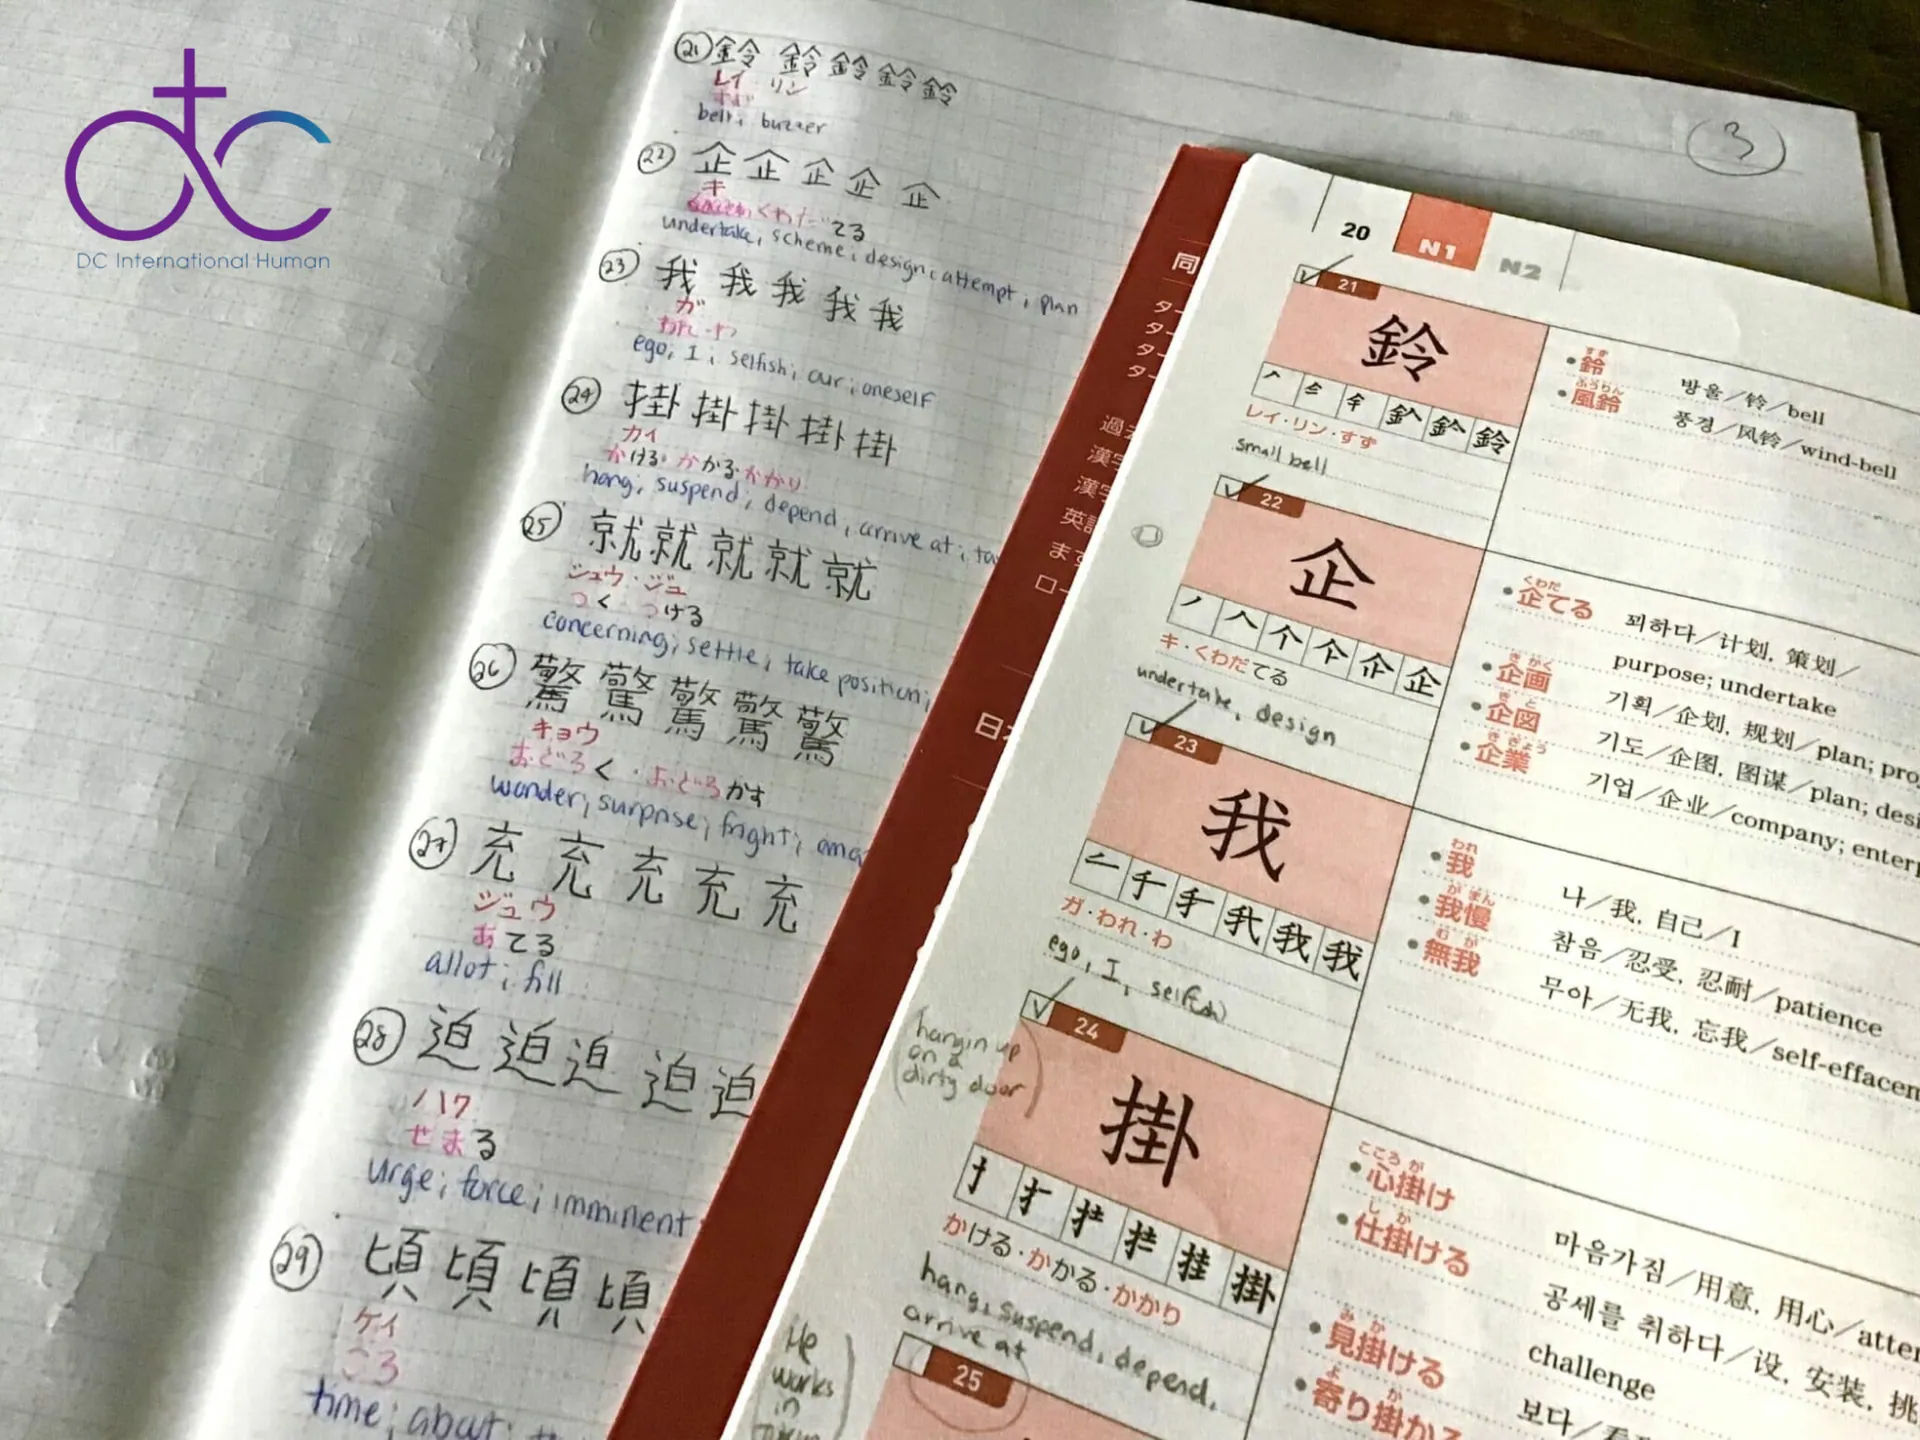 dtc
DC International Human
21 鈴 鈴 鈴 鈴 鈴
レイ リン
すず
bell; buzzer
22 企 企 企 企 企
キ
くわだてる
undertake; scheme; design; attempt; plan
23 我 我 我 我 我
ガ
われ・わ
ego; I; selfish; our; oneself
24 掛 掛 掛 掛 掛
カイ
かける・かかる・かかり
hang; suspend; depend; arrive at;
25 就 就 就 就 就
シュウ・ジュ
つく つける
concerning; settle; take position;
26 驚 驚 驚 驚 驚
キョウ
おどろく・おどろかす
wonder; surprise; fright;
27 充 充 充 充 充
ジュウ
あてる
allot; fill
28 迫 迫 迫 迫 迫
ハク
せまる
urge; force; imminent
29 頃 頃 頃 頃
ケイ
ころ
time; about;
3
同
ター
ター
ター
ター
過去
漢字
漢字
英語
ます
ロー
日本
20 N1 N2
21
鈴
レイ・リン・すず
small bell
すず
・鈴 방울/铃/bell
ふうりん
・風鈴 풍경/风铃/wind-bell
22
企
キ・くわだてる
undertake, design
くわだ
・企てる 꾀하다/计划, 策划/
purpose; undertake
きかく
・企画 기획/企划, 规划/plan;
きと
・企図 기도/企图, 图谋/plan;
きぎょう
・企業 기업/企业/company;
23
我
ガ・われ・わ
ego, I, selfish
われ
・我 나/我, 自己/I
がまん
・我慢 참음/忍受, 忍耐/patience
むが
・無我 무아/无我, 忘我/
24
掛
かける・かかる・かかり
hang, suspend, depend,
arrive at
hangin up
on a
dirty door
こころが
・心掛け 마음가짐/用意, 用心/
しか
・仕掛ける 공세를 취하다/设, 安装,
challenge
みか
・見掛ける 보다/
よ か
・寄り掛かる
25
He
works
in